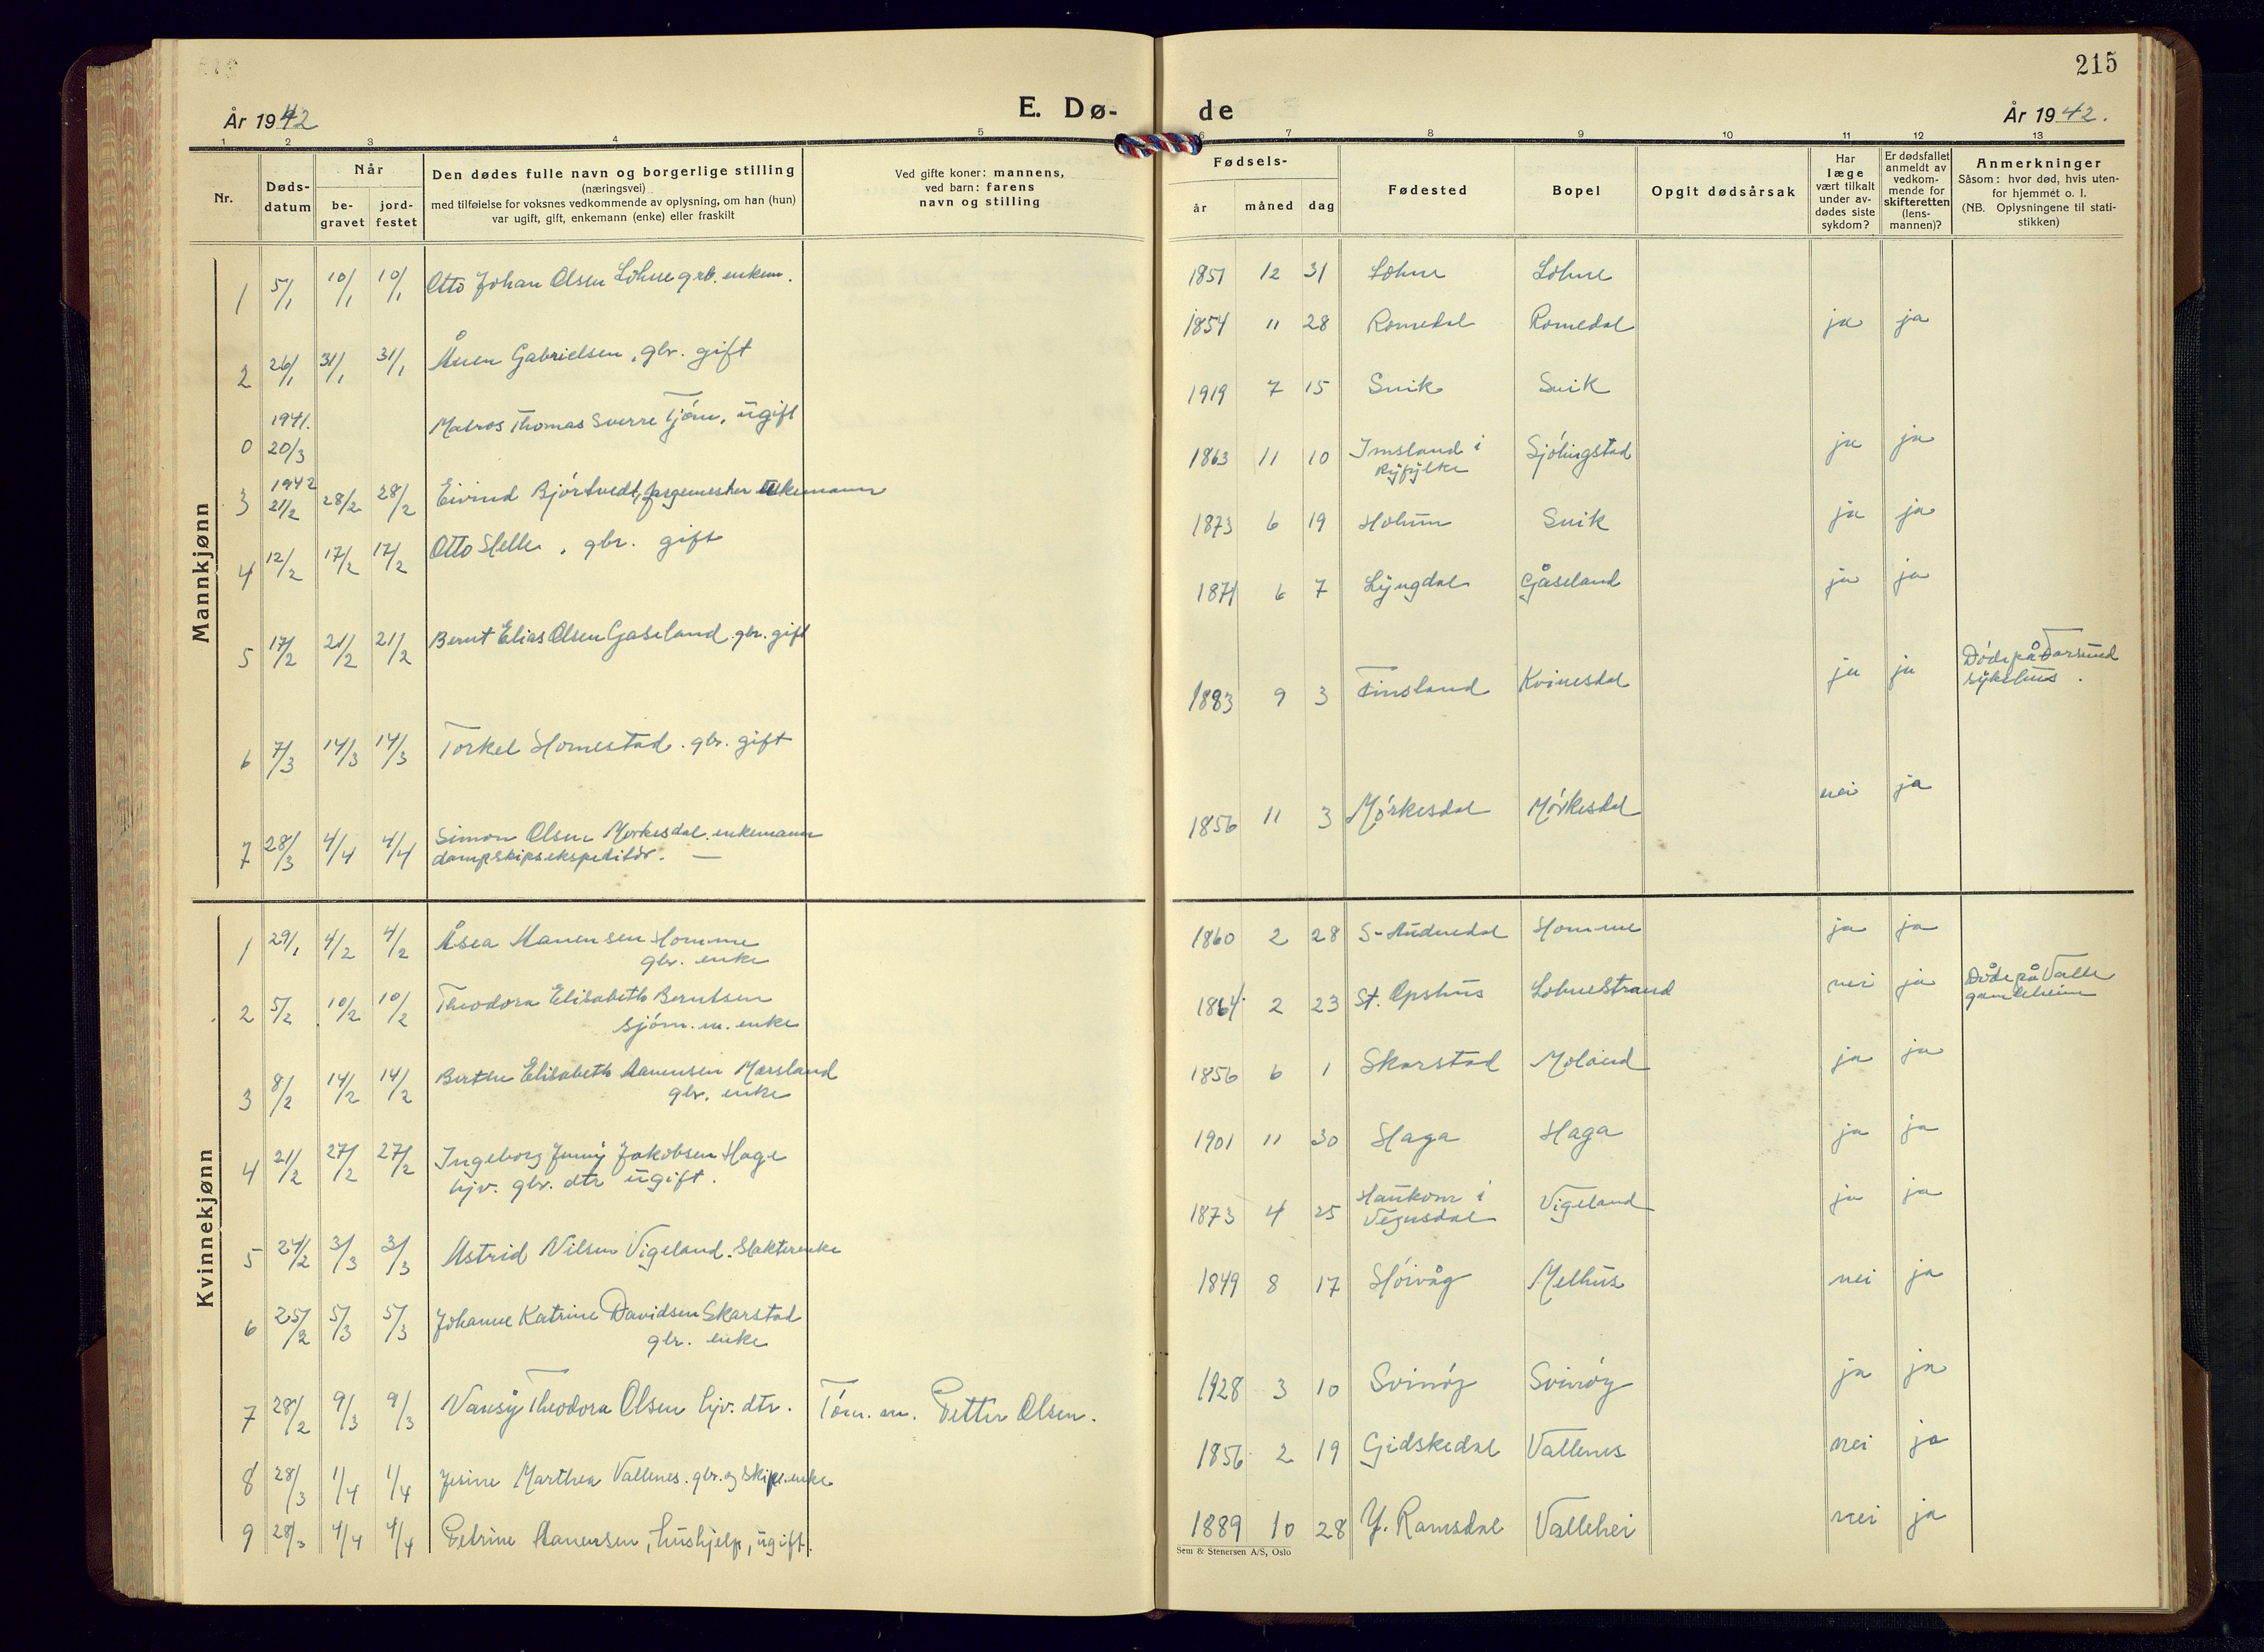 215
År 1942
E. Dø-
de
År 1942.
1 2 3 4 5 6 7 8 9 10 11 12 13
Nr.
Døds-
datum
Når
be-
gravet
jord-
festet
Den dødes fulle navn og borgerlige stilling
(næringsvei)
med tilføielse for voksnes vedkommende av oplysning, om han (hun)
var ugift, gift, enkemann (enke) eller fraskilt
Ved gifte koner: mannens,
ved barn: farens
navn og stilling
Fødsels-
år måned dag
Fødested
Bopel
Opgit dødsårsak
Har
læge
vært tilkalt
under av-
dødes siste
sykdom?
Er dødsfallet
anmeldt av
vedkom-
mende for
skifteretten
(lens-
mannen)?
Anmerkninger
Såsom: hvor død, hvis uten-
for hjemmet o. l.
(NB. Oplysningene til stati-
stikken)
Mannkjønn
1 5/1 10/1 10/1 Otto Johan Olsen Lohne grb. enkem. 1851 12 31 Lohne Lohne
2 26/1 31/1 31/1 Ånen Gabrielsen, gbr. gift 1854 11 28 Romedal Romedal ja ja
0 1941. 20/3 Matros Thomas Sverre Tjøm, ugift 1919 7 15 Snik Snik
3 1942 21/2 28/2 28/2 Eivind Bjørtvedt, fargemester enkemann 1863 11 10 Imsland i Ryfylke Sjølingstad ja ja
4 12/2 17/2 17/2 Otto Helle, gbr. gift 1873 6 19 Holum Snik ja ja
5 17/2 21/2 21/2 Bernt Elias Olsen Gaseland. gbr. gift 1871 6 7 Lyngdal Gåseland ja ja
6 7/3 14/3 14/3 Torkel Homestad. gbr. gift 1883 9 3 Finsland Kvinesdal ja ja Døde på Farsund sykehus.
7 28/3 4/4 4/4 Simon Olsen Mørkesdal. enkemann
dampskipsekspeditør. — 1856 11 3 Mørkesdal Mørkesdal nei ja
Kvinnekjønn
1 29/1 4/2 4/2 Åsea Hanensen Homme
gbr. enke 1860 2 28 S-Audnedal Homme ja ja
2 5/2 10/2 10/2 Theodora Elisabeth Berntsen
sjøm. m. enke 1864 2 23 St. Opshus Lohnestrand nei ja Døde på Valle gamleheim
3 8/2 14/2 14/2 Berthe Elisabeth Aanensen Marsland
gbr. enke 1856 6 1 Skarstad Moland ja ja
4 21/2 27/2 27/2 Ingeborg Jenny Jakobsen Hage
hjv. gbr. dtr ugift. 1901 11 30 Haga Haga ja ja
5 24/2 3/3 3/3 Astrid Nilsen Vigeland. Slakterenke 1873 4 25 Haukom i Vegusdal Vigeland ja ja
6 25/2 5/3 5/3 Johanne Katrine Davidsen Skarstad
gbr. enke 1849 8 17 Høivåg Melhus nei ja
7 28/2 9/3 9/3 Vansy Theodora Olsen hjv. dtr. Tøm. m. Petter Olsen. 1928 3 10 Svinøy Svinøy ja ja
8 28/3 1/4 1/4 Jesine Marthea Vallenes. gbr. og skip.enke 1856 2 19 Gidskedal Vallenes nei ja
9 28/3 4/4 4/4 Petrine Aanensen, hushjelp, ugift. 1889 10 28 Y. Ramsdal Vallehei nei ja
Sem & Stenersen A/S, Oslo